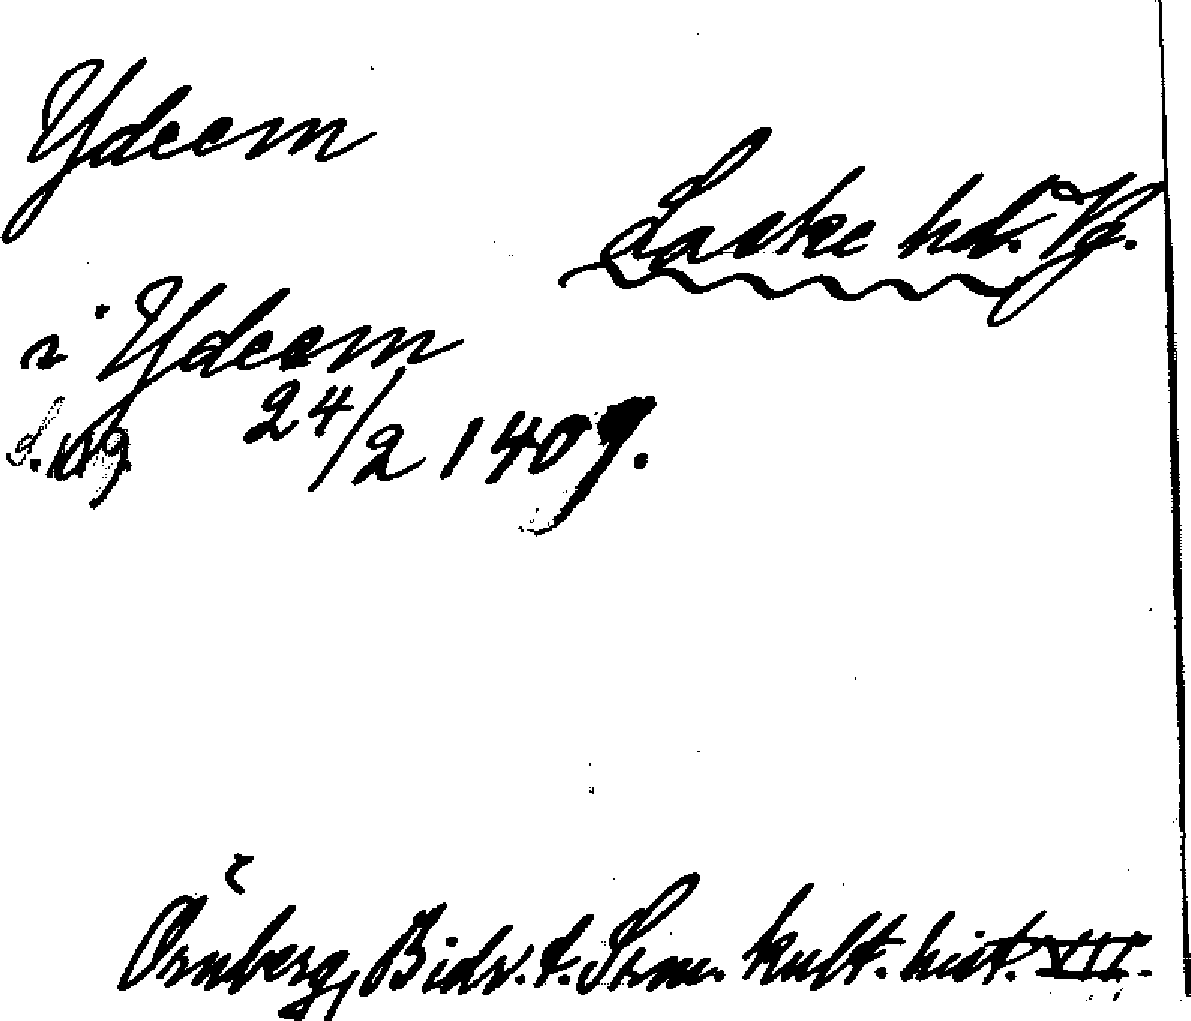 Ydeem
Laske hd. Vg.
i Ydeem
24/2 1409.
Örnberg, Bidr. t. Srm. kult. hist. VII.